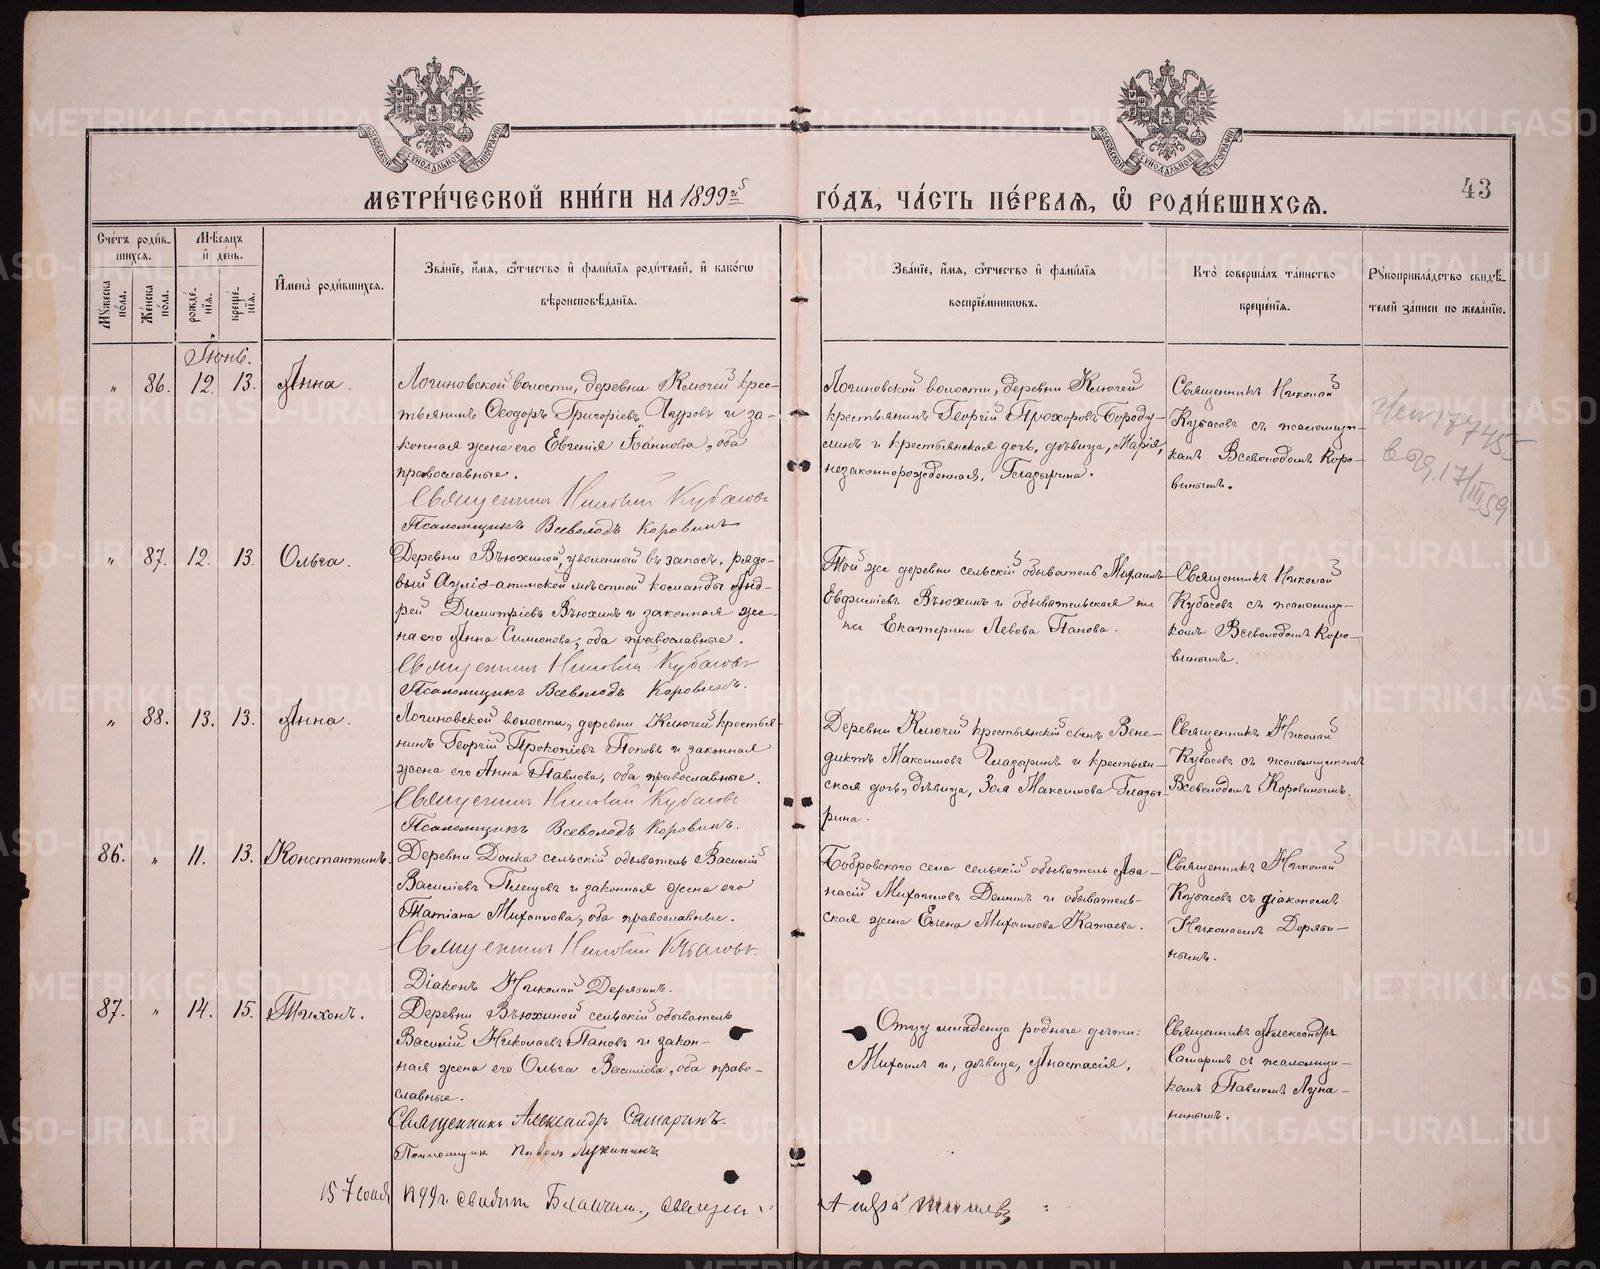 МОСКОВСКОЙ СѴНОДАЛЬНОЙ ТИПОГРАФІИ
МОСКОВСКОЙ СѴНОДАЛЬНОЙ ТИПОГРАФІИ
МЕТРИ́ЧЕСКОЙ КНИ́ГИ НА 1899й ГО́ДЪ, ЧА́СТЬ ПЕ́РВАЯ, Ѡ РОДИ́ВШИХСЯ.
43
Сче́тъ роди́в-
шихся.
Му́жеска по́ла.
Же́нска по́ла.
Мѣ́сяцъ и́ де́нь.
рожде́-
нія.
креще́-
нія.
Имена̀ роди́вшихся.
Зва́ніе, и́мя, ѻ́тчество и҆ фами́лія роди́телей, и҆ како́гѡ
вѣроисповѣ́данія.
Зва́ніе, и́мя, ѻ́тчество и҆ фами́лія
воспріе́мниковъ.
Кто̀ соверша́лъ та́инство
креще́нія.
Рꙋкоприкла́дство свидѣ́-
телей за́писи по жела́нію.
Іюнь.
" 86. 12. 13. Анна.
Логиновской волости, деревни Ключей крес-
тьянинъ Ѳеодоръ Григоріевъ и за-
конная жена его Евгенія Іоаннова, оба
православные.
Священникъ Николай Кубасовъ
Псаломщикъ Всеволодъ Коровинъ
Логиновской волости, деревни Ключей
крестьянинъ Георгій Прохоровъ Бороду-
линъ и крестьянская дочь, дѣвица, Марія,
незаконнорожденная, Гладырина.
Священникъ Николай
Кубасовъ съ псаломщи-
комъ Всеволодомъ Коро-
винымъ.
" 87. 12. 13. Ольга.
Деревни Вьюхиной, уволенный въ запасъ, рядо-
вый Ауліэ-атинской мѣстной команды Анд-
рей Димитріевъ Вьюхинъ и законная же-
на его Анна Симеонова, оба православные.
Священникъ Николай Кубасовъ
Псаломщикъ Всеволодъ Коровинъ.
Той же деревни сельскій обыватель Михаилъ
Евфиміевъ Вьюхинъ и обывательская
Екатерина Левова Панова.
Священникъ Николай
Кубасовъ съ псаломщи-
комъ Всеволодомъ Коро-
винымъ.
" 88. 13. 13. Анна.
Логиновской волости, деревни Ключей крестья-
нинъ Георгій Прокопіевъ Поповъ и законная
жена его Анна Павлова, оба православные.
Священникъ Николай Кубасовъ
Псаломщикъ Всеволодъ Коровинъ.
Деревни Ключей крестьянскій сынъ Вене-
диктъ Максимовъ Гладыринъ и крестьян-
ская дочь, дѣвица, Зоя Максимова Глады-
рина.
Священникъ Николай
Кубасовъ съ псаломщикомъ
Всеволодомъ Коровинымъ.
86. " 11. 13. Константинъ.
Деревни Донка сельскій обыватель Василій
Василіевъ Плещевъ и законная жена его
Татіана Михайлова, оба православные.
Священникъ Николай Кубасовъ.
Діаконъ Николай Дерябинъ.
Бобровского села сельскій обыватель Аѳа-
насій Михайловъ Деминъ и обыватель-
ская жена Елена Михайлова Катаева.
Священникъ Николай
Кубасовъ съ діакономъ
Николаемъ Деряби-
нымъ.
87. " 14. 15. Тихонъ.
Деревни Вьюхиной сельскій обыватель
Василій Николаевъ Пановъ и закон-
ная жена его Ольга Василіева, оба право-
славные.
Священникъ Александръ Самаринъ.
Псаломщик Павелъ Лунанинъ
Отцу младенца родные дѣти:
Михаилъ и, дѣвица, Анастасія.
Священникъ Александръ
Самаринъ съ псаломщи-
комъ Павломъ Луна-
нинымъ.